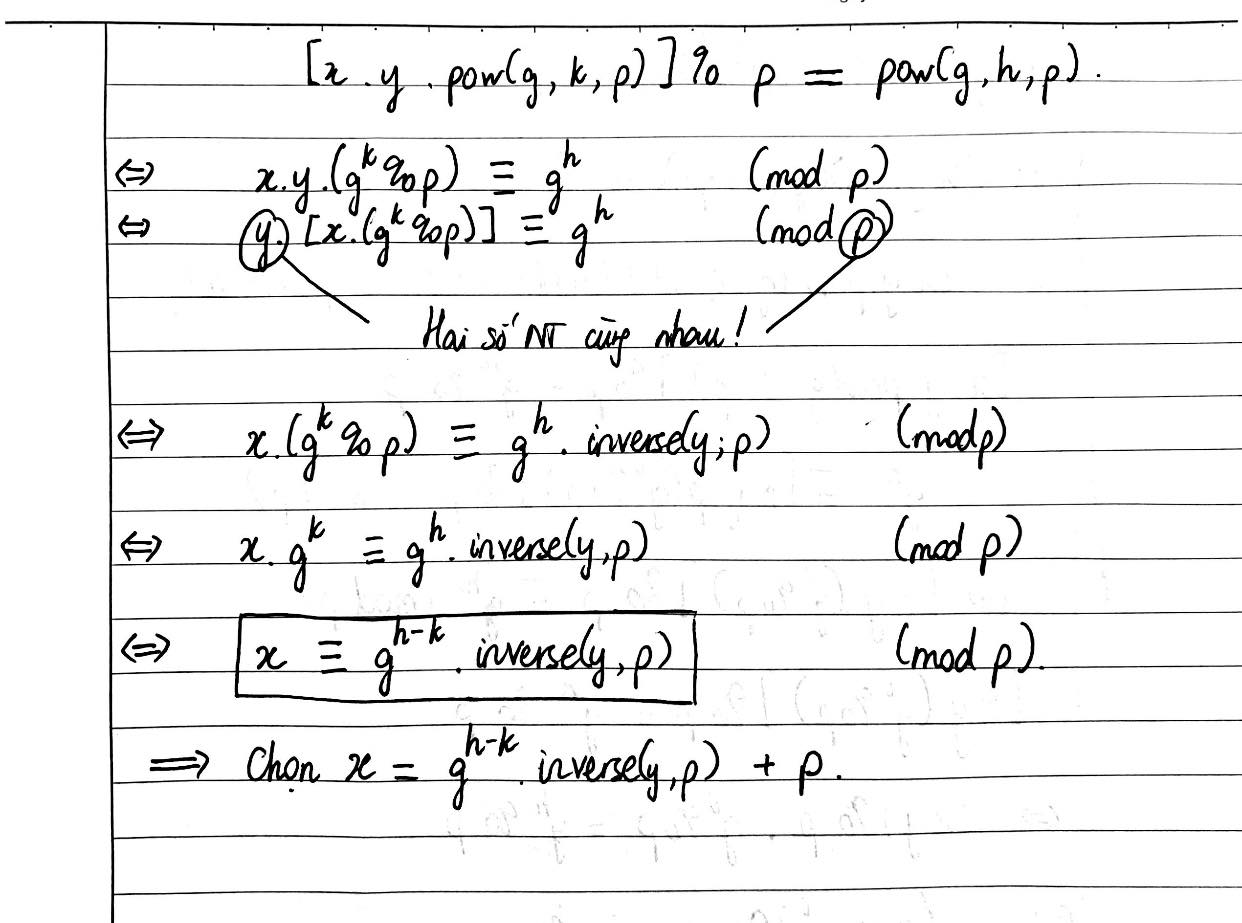 [x . y . pow(g, k, p)] % p = pow(g, h, p).
⇔ x.y.(g^k % p) ≡ g^h (mod p)
⇔ y. [x.(g^k % p)] ≡ g^h (mod p)
Hai số NT cùng nhau!
⇔ x.(g^k % p) ≡ g^h . inverse(y; p) (mod p)
⇔ x. g^k ≡ g^h . inverse(y, p) (mod p)
⇔ x ≡ g^{h-k} . inverse(y, p) (mod p).
⟹ Chọn x = g^{h-k} . inverse(y, p) + p.